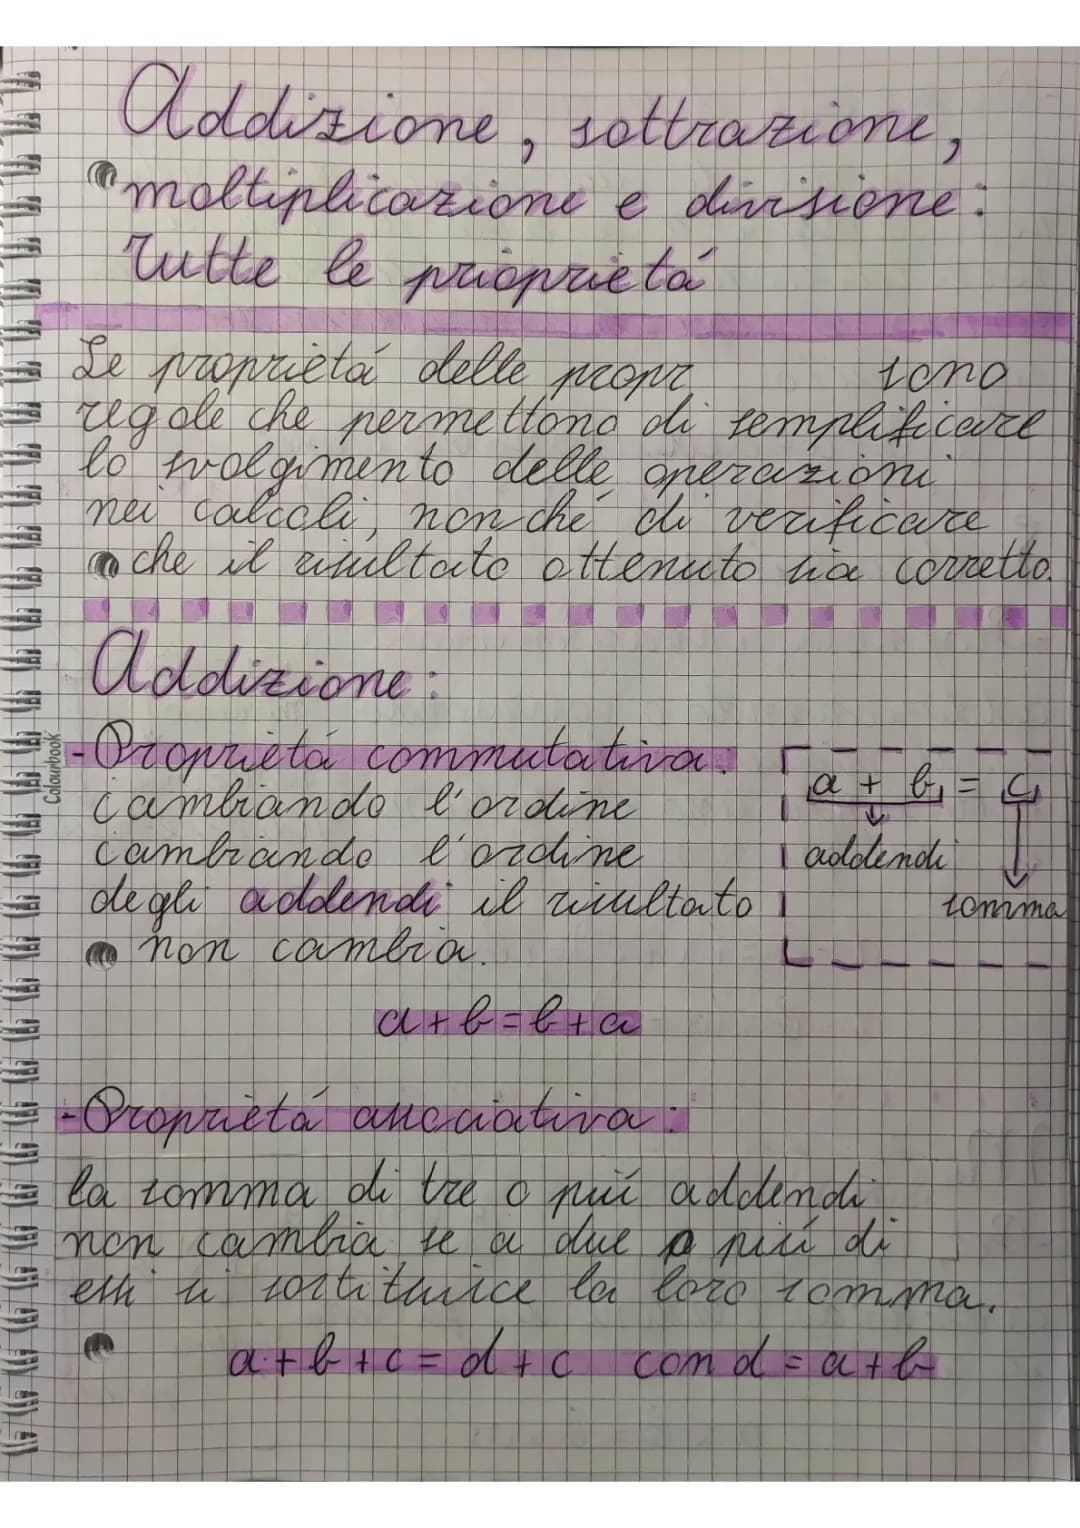 Addizione, sottrazione,
moltiplicazione e divisione:
Tutte le proprietá
Le proprietá delle propr sono
regole che permettono di semplificare
lo svolgimento delle operazioni
nei calcoli, nonché di verificare
che il risultato ottenuto sia corretto.
Addizione:
-Proprietá commutativa:
cambiando l'ordine
cambiando l'ordine
degli addendi il risultato
non cambia.
a + b = c
addendi
somma
a+b=b+a
-Proprietá associativa:
la somma di tre o piú addendi
non cambia se a due o piú di
essi si sostituisce la loro somma.
a+b+c=d+c con d=a+b
Colourbook